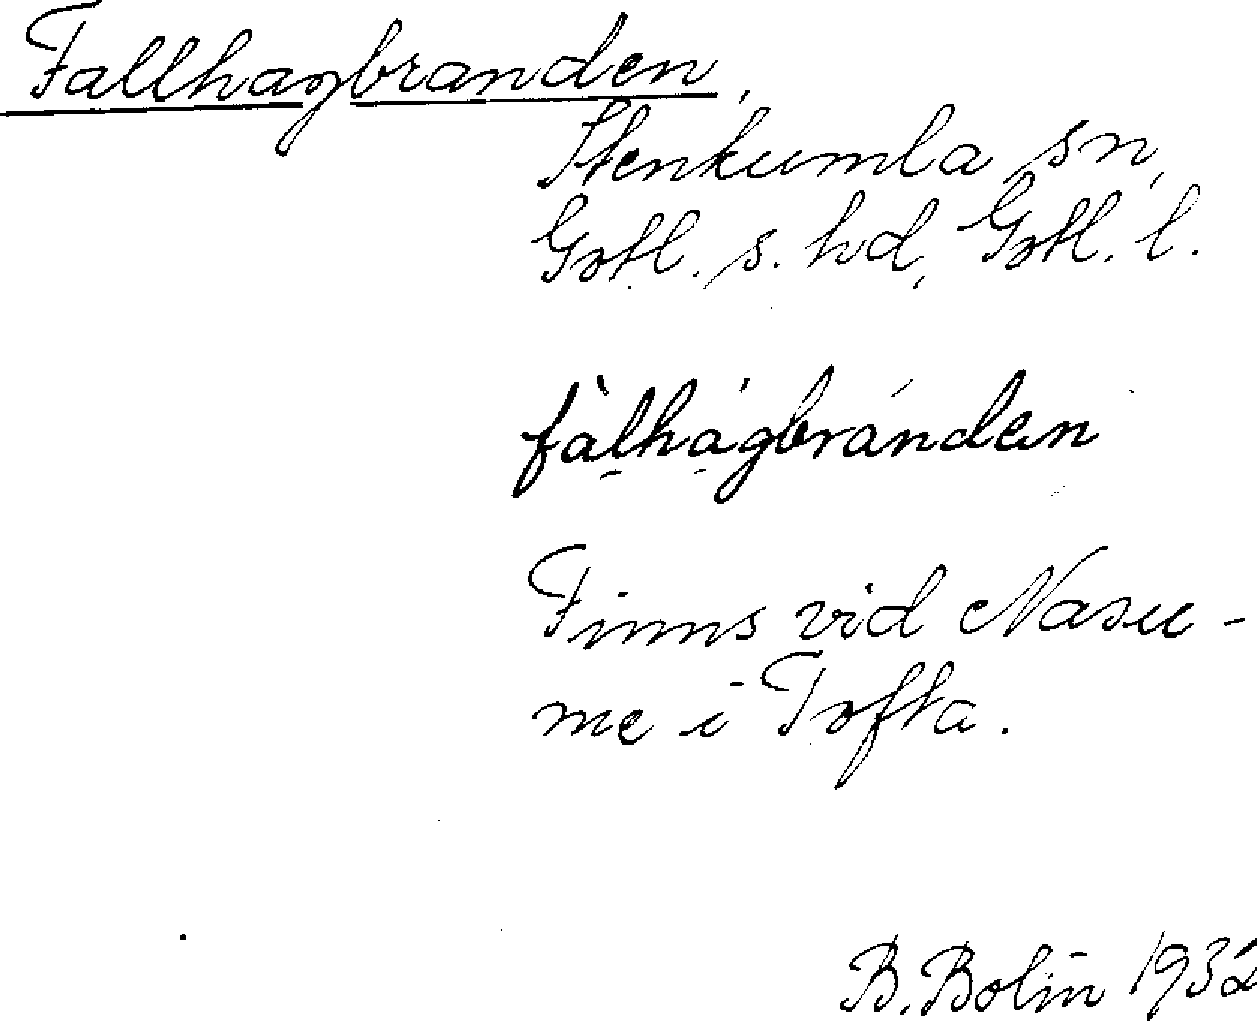 Fallhagbranden,
Stenkumla sn,
Gotl. s. hd, Gotl. l.
fàlhágbránden
Finns vid Nasu-
me i Tofta.
B. Bolin 1932